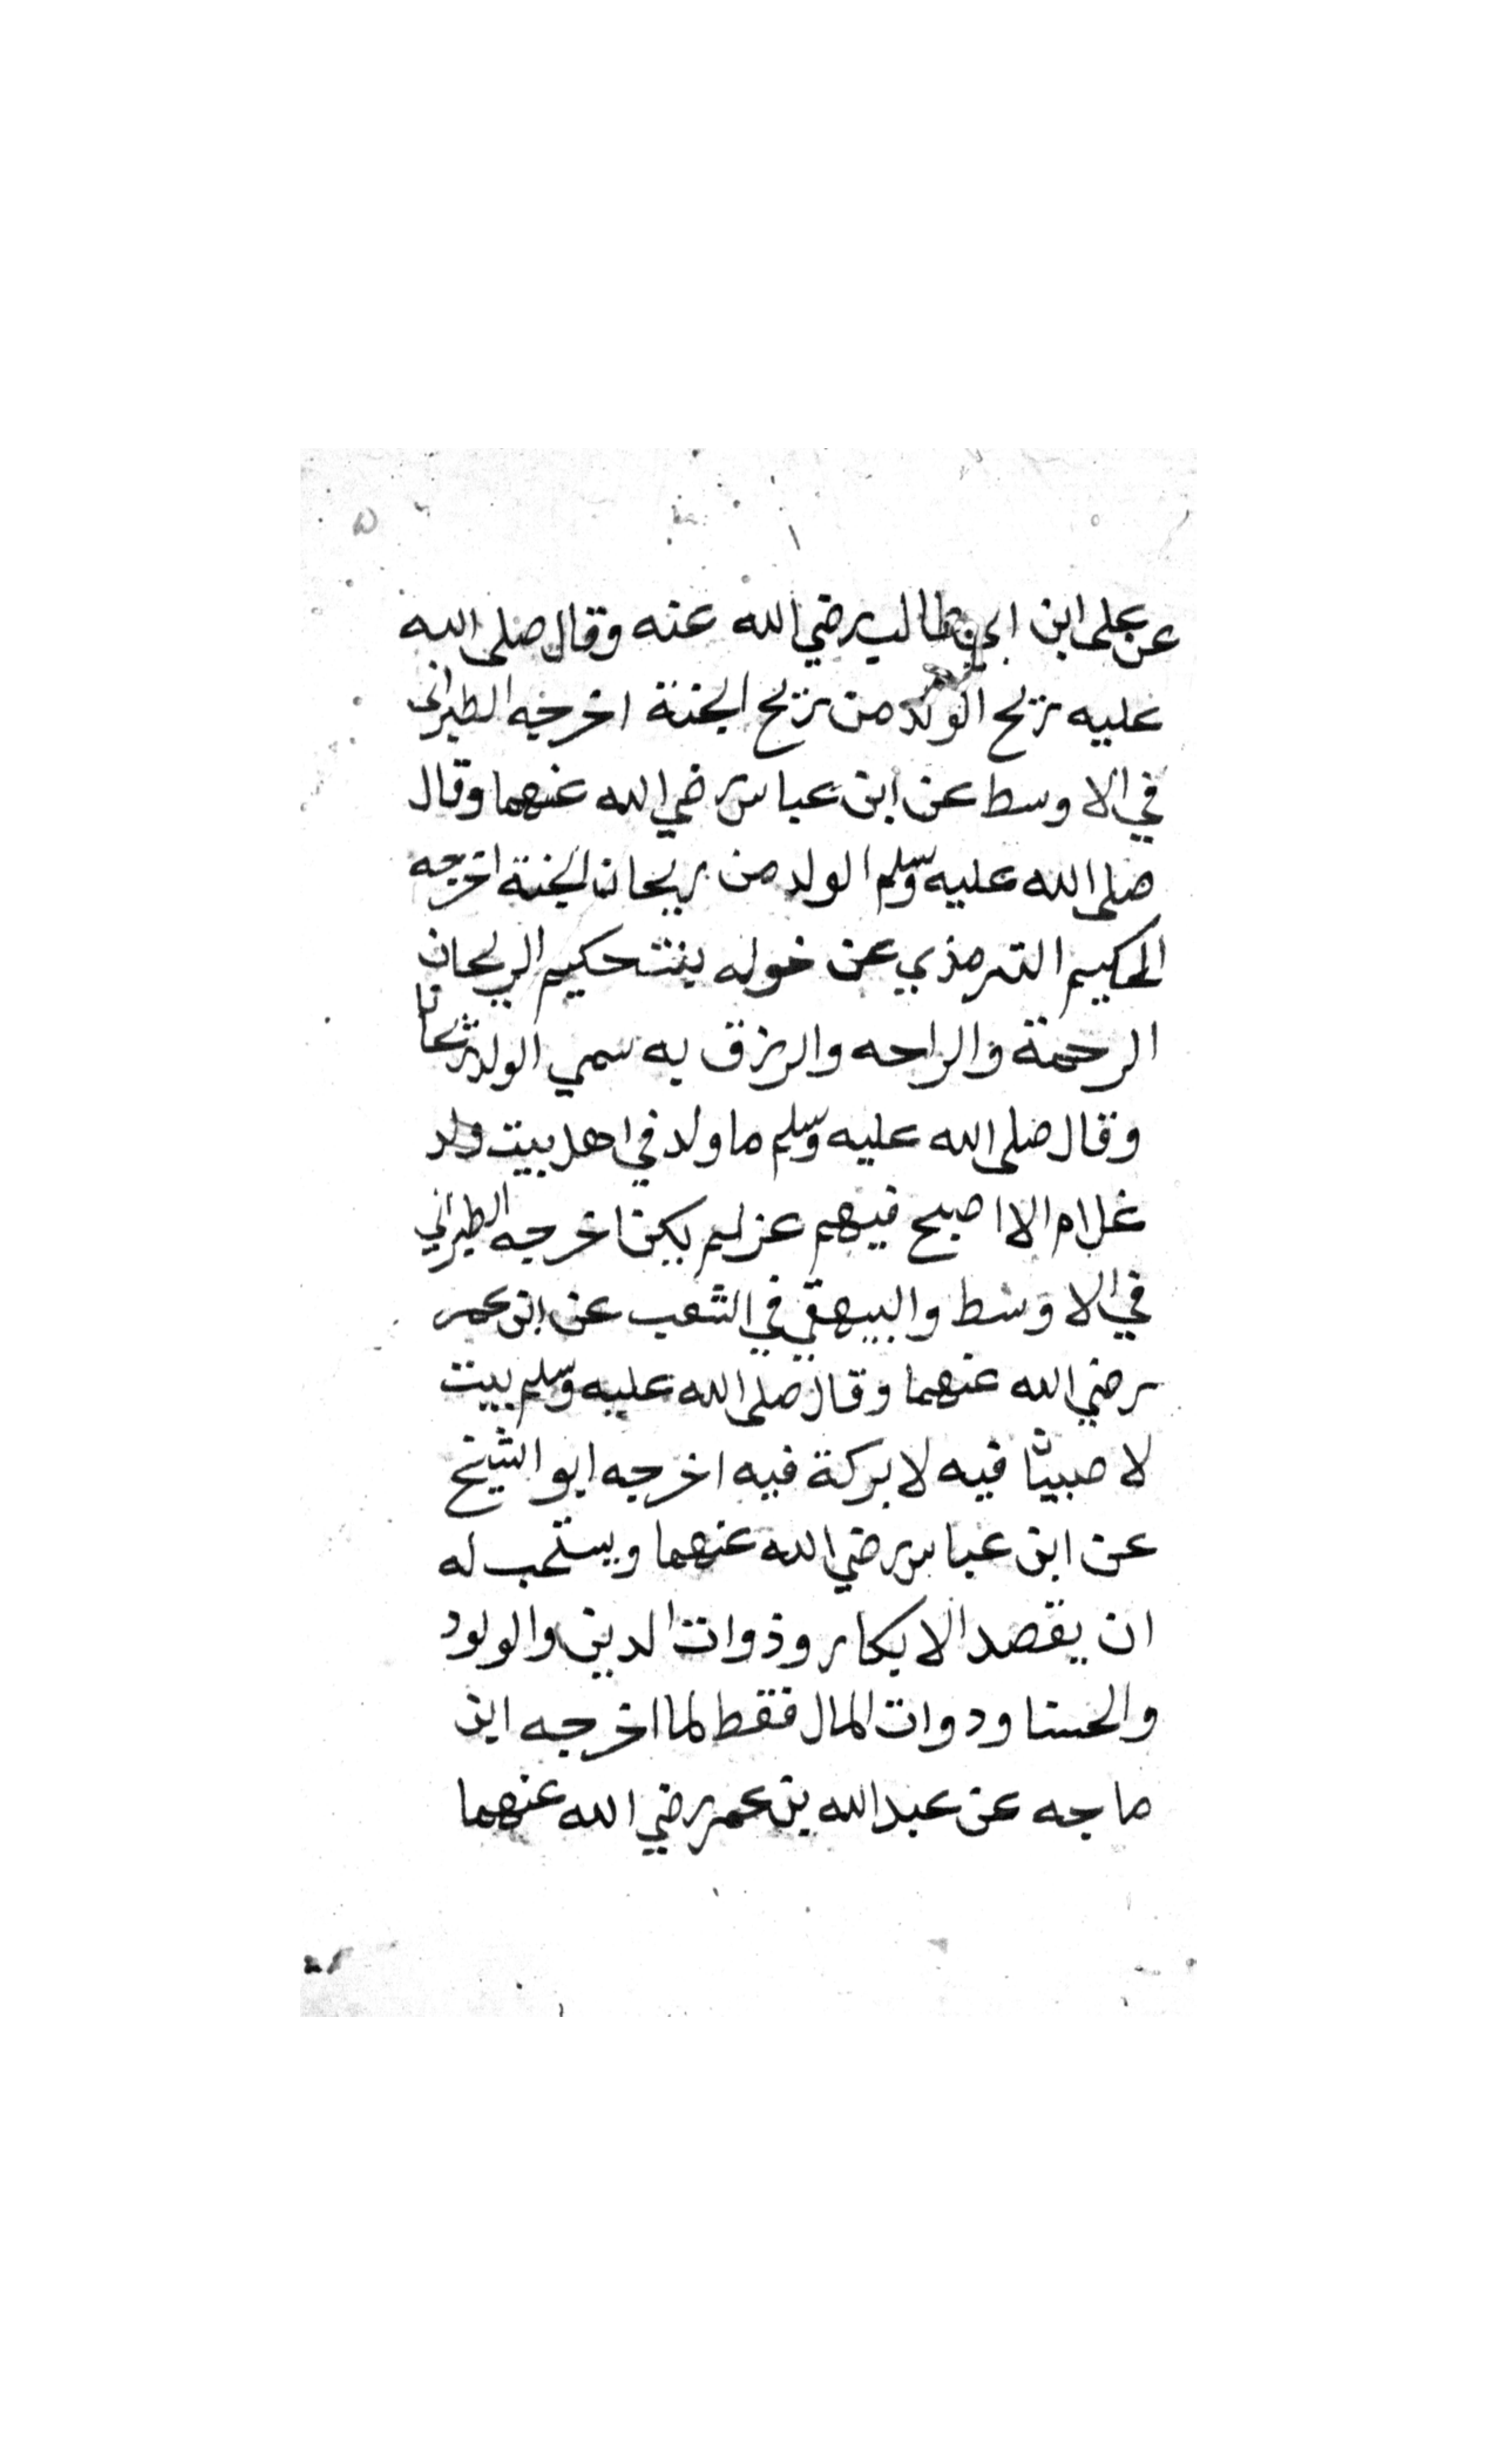 عن على ابن ابي طالب رضي الله عنه وقال صلى الله
عليه ريح الولد من ريح الجنة اخرجه الطبراني
في الاوسط عن ابن عباس رضي الله عنهما وقال
صلى الله عليه وسلم الولد من ريحان الجنة اخرجه
الحكيم الترمذي عن خوله بنت حكيم الريحان
الرحمة والراحه والرزق به سمي الولد ريحانا
وقال صلى الله عليه وسلم ما ولد في اهل بيت ولد
غلام الا اصبح فيهم عز لم يكن اخرجه الطبراني
في الاوسط والبيهقي في الشعب عن ابن عمر
رضي الله عنهما وقال صلى الله عليه وسلم بيت
لا صبيان فيه لا بركة فيه اخرجه ابو الشيخ
عن ابن عباس رضي الله عنهما ويستحب له
ان يقصد الابكار وذوات الدين والولود
والحسنا ودوات المال فقط لما اخرجه ابن
ماجه عن عبد الله بن عمر رضي الله عنهما